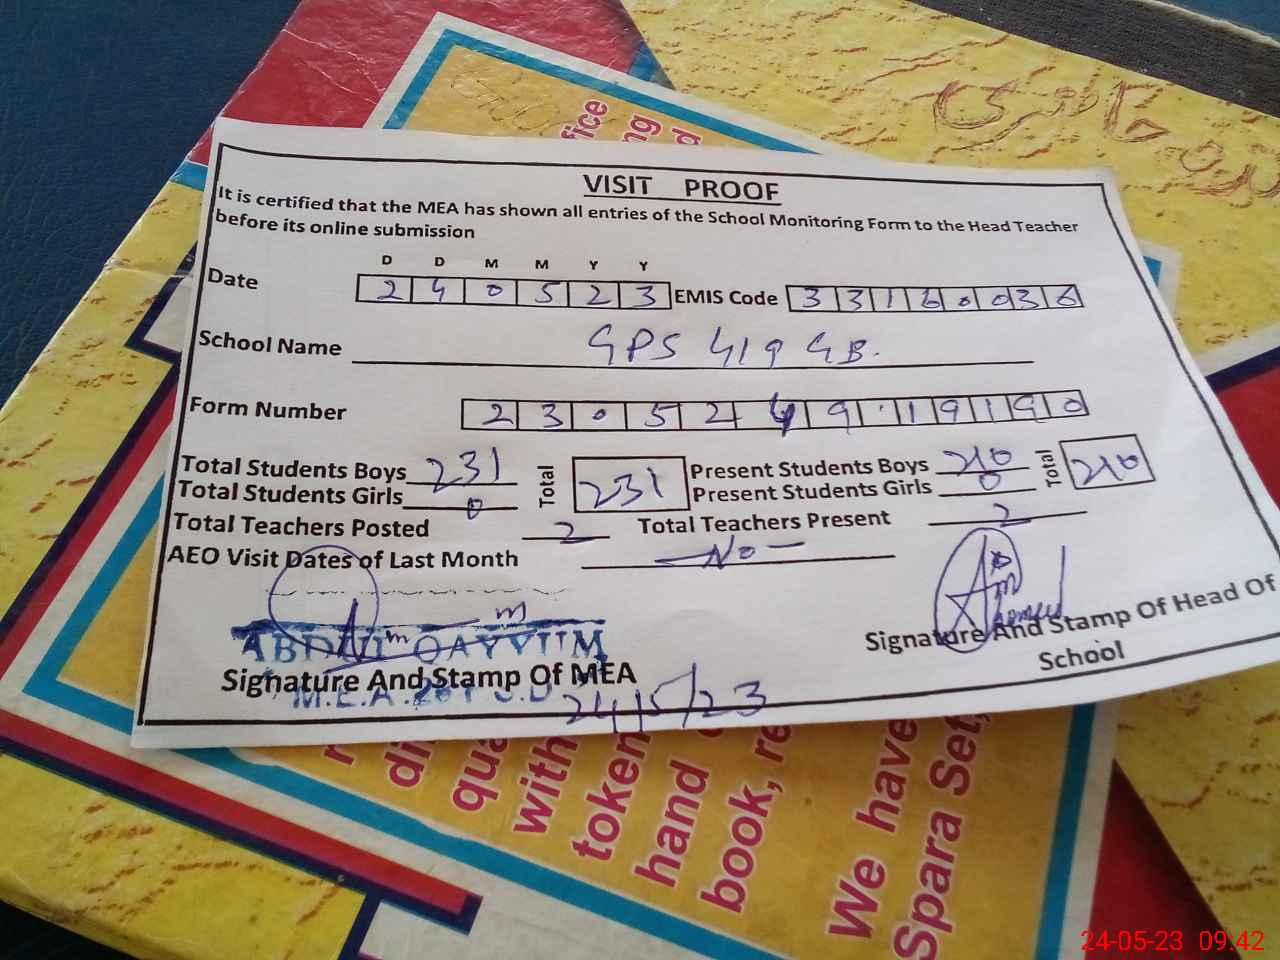 VISIT PROOF
It is certified that the MEA has shown all entries of the School Monitoring Form to the Head Teacher
before its online submission
D D M M Y Y
Date 2 4 0 5 2 3 EMIS Code 3 3 1 6 0 0 3 6
School Name GPS 419 GB.
Form Number
Total Students Boys 231 Total 231 Present Students Boys 210 Total 210
Total Students Girls 0 Present Students Girls 0
Total Teachers Posted 2 Total Teachers Present 2
AEO Visit Dates of Last Month — No —
ABDUL QAYYUM
Signature And Stamp Of MEA
Signature And Stamp Of Head Of
School
M.E.A
24/5/23
We have
Spara Set,
hand
book, re
token
with
qua
di
24-05-23 09:42